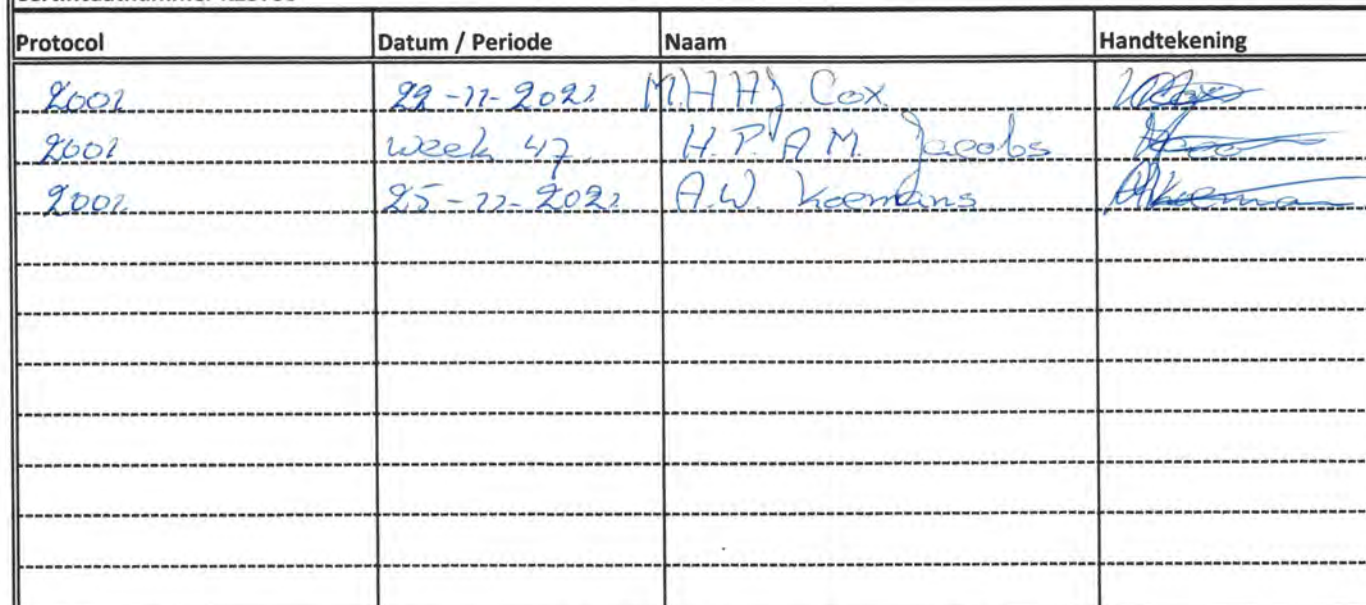 Protocol Datum / Periode Naam Handtekening
2001 22-11-2021 M.H.H.J Cox
2001 week 47 H.P.A.M. Jacobs
2001 25-11-2021 A.W. Koemans